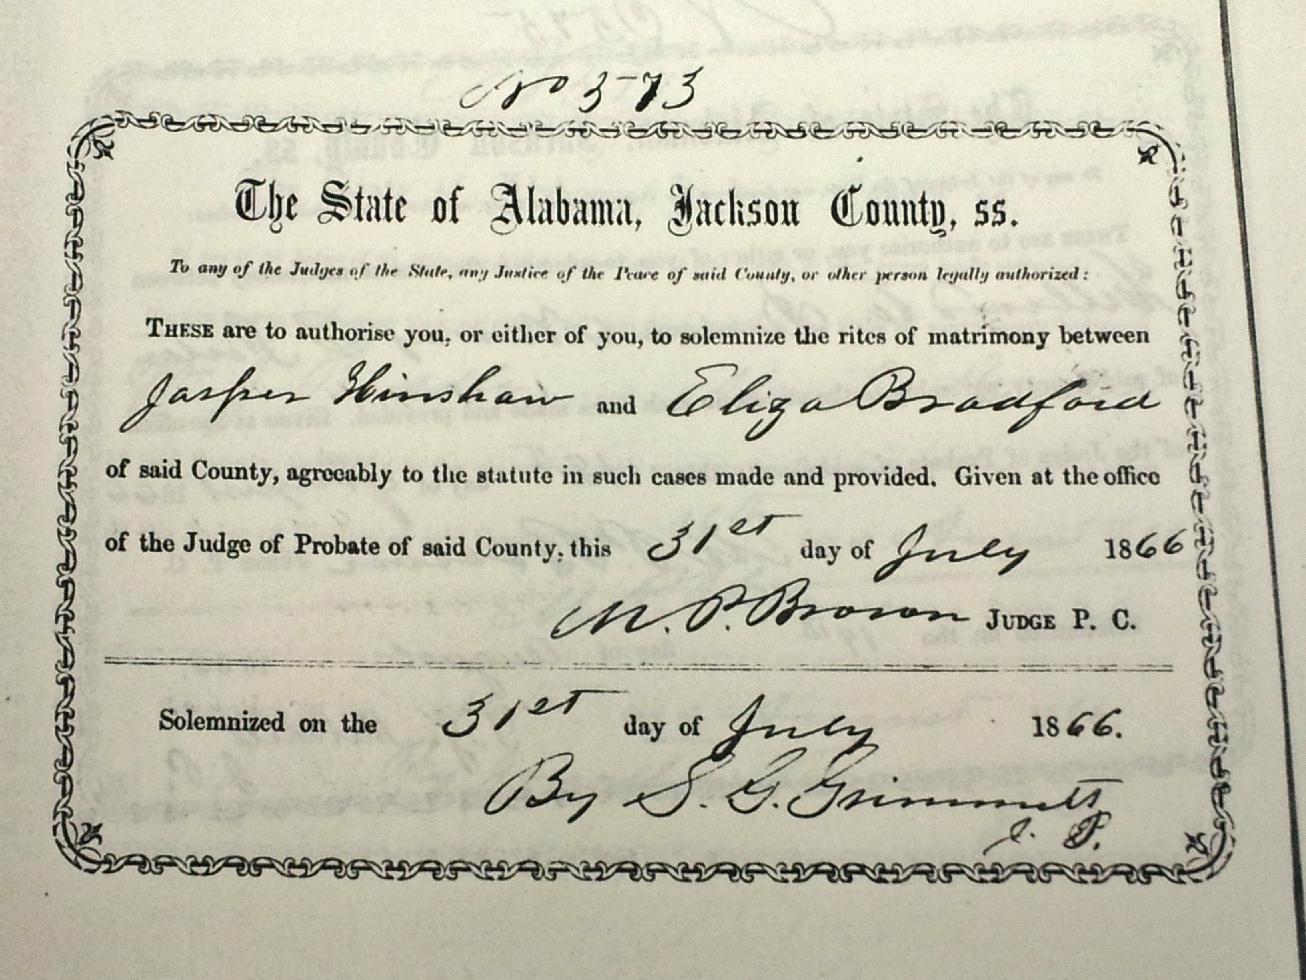 No 573
The State of Alabama, Jackson County, ss.
To any of the Judges of the State, any Justice of the Peace of said County, or other person legally authorized:
THESE are to authorise you, or either of you, to solemnize the rites of matrimony between
Jasper Hinshaw and Eliza Bradford
of said County, agreeably to the statute in such cases made and provided. Given at the office
of the Judge of Probate of said County, this 31st day of July 1866
M. P. Brown JUDGE P. C.
Solemnized on the 31st day of July 1866.
By S. G. Grimmett
J. P.